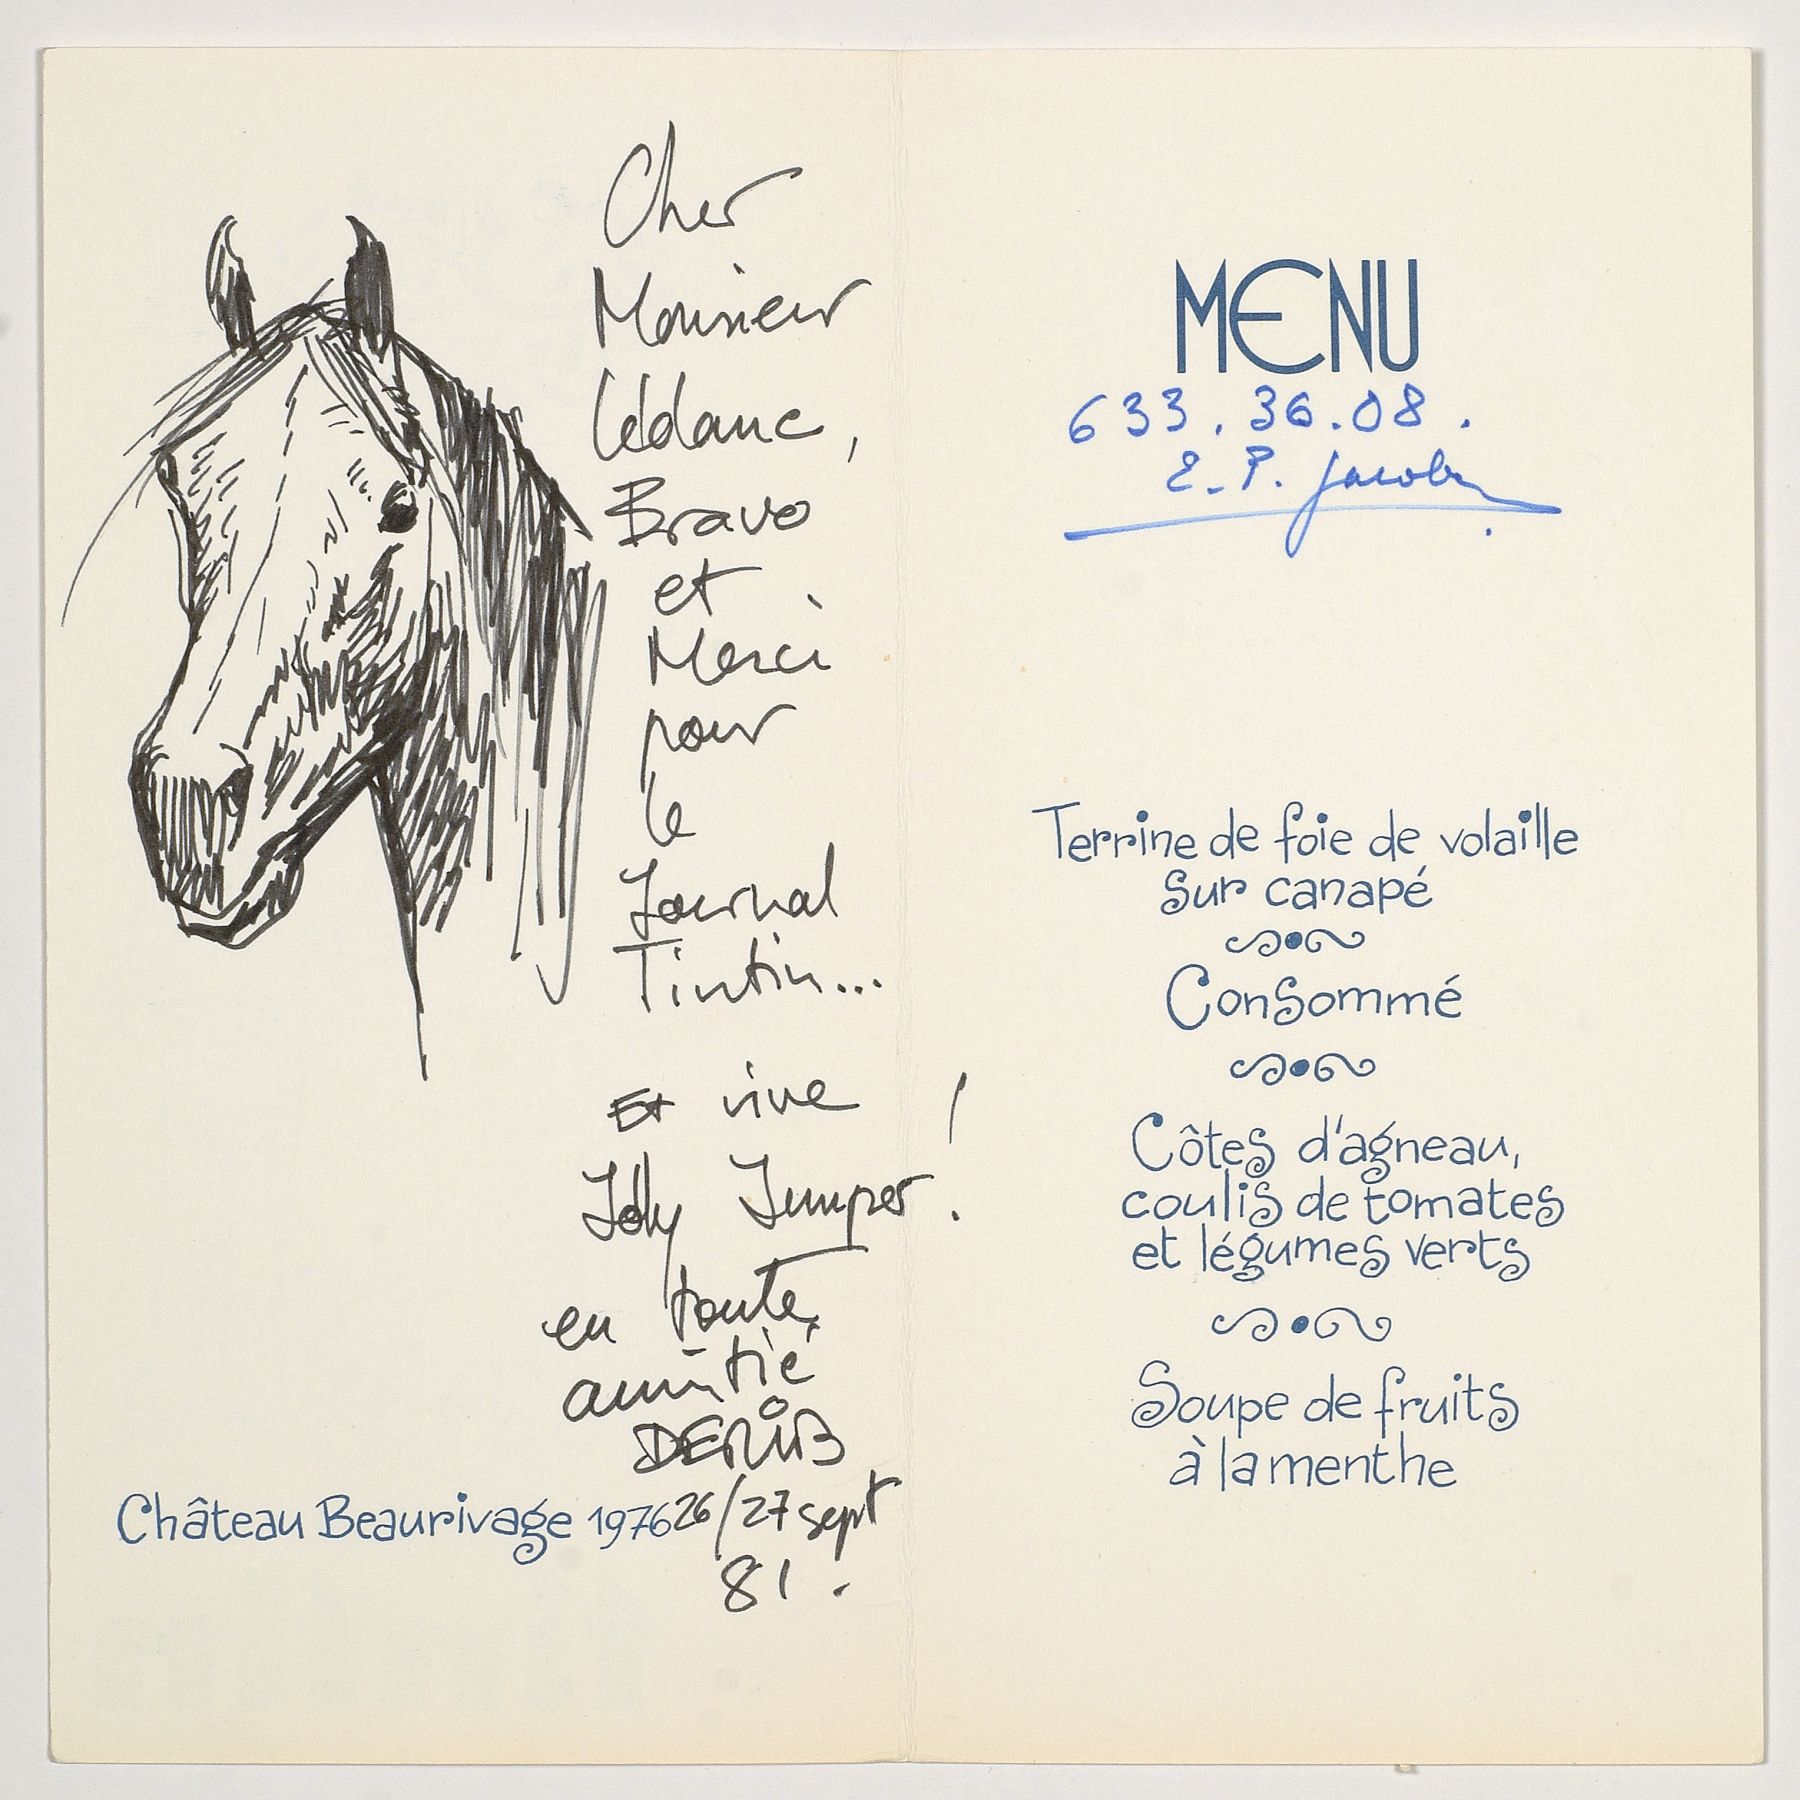 Cher
Monsieur
Leblanc,
Bravo
et
Merci
pour
le
Journal
Tintin...
Et vive
Jolly Jumper !
en toute
amitié
DERIB
Château Beaurivage 1976 26/27 sept
81.
MENU
633.36.08.
E.P. Jacobs
Terrine de foie de volaille
sur canapé
Consommé
Côtes d'agneau,
coulis de tomates
et légumes verts
Soupe de fruits
à la menthe